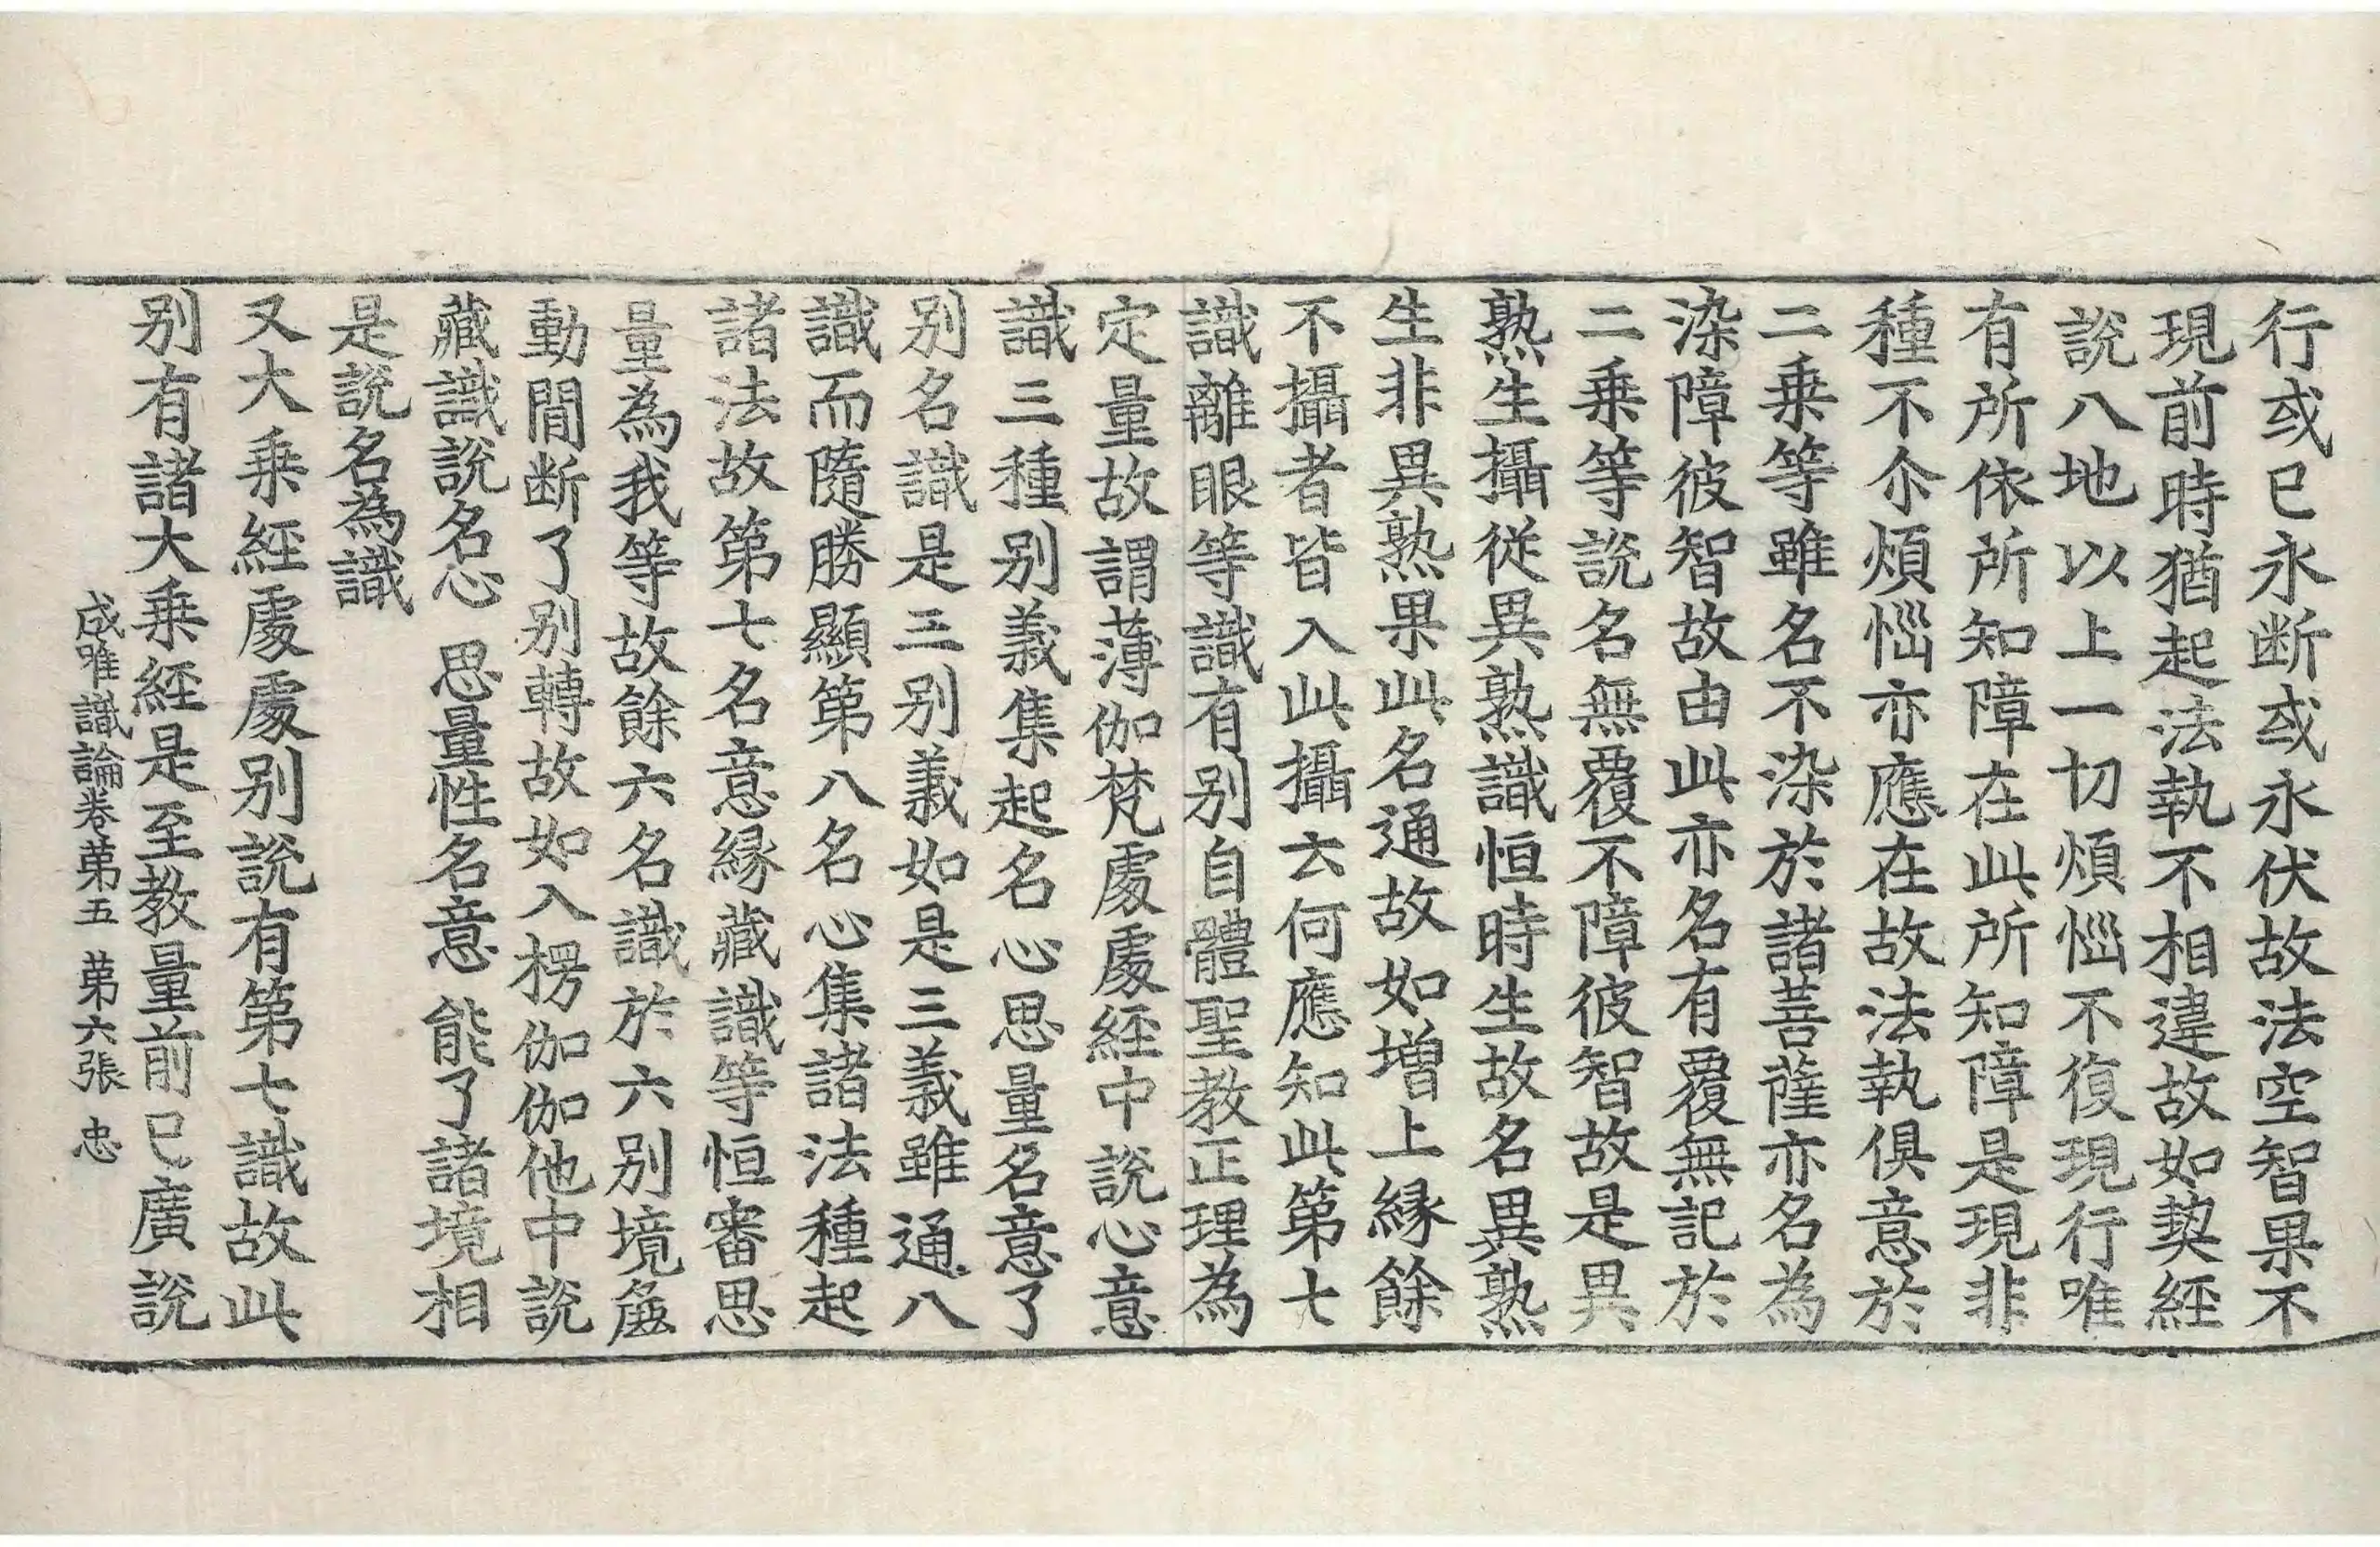 行或已永断或永伏故法空智果不
現前時猶起法執不相違故如契經
說八地以上一切煩惱不復現行唯
有所依所知障在此所知障是現非
種不尒煩惱亦應在故法執俱意於
二乗等雖名不染於諸菩薩亦名為
染障彼智故由此亦名有覆無記於
二乗等說名無覆不障彼智故是異
熟生攝從異熟識恒時生故名異熟
生非異熟果此名通故如增上緣餘
不攝者皆入此攝云何應知此第七
識離眼等識有別自體聖教正理為
定量故謂薄伽梵處處經中說心意
識三種別義集起名心思量名意了
別名識是三別義如是三義雖通八
識而隨勝顯第八名心集諸法種起
諸法故第七名意緣藏識等恒審思
量為我等故餘六名識於六別境麁
動間断了別轉故如入楞伽伽他中說
藏識說名心 思量性名意 能了諸境相
是說名為識
又大乗經處處別說有第七識故此
別有諸大乗經是至教量前已廣說
成唯識論卷第五 第六張 忠